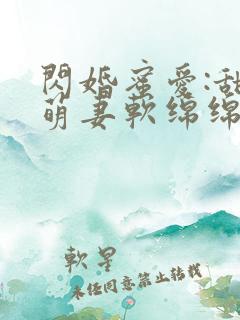 閃婚蜜愛:甜
萌妻軟綿綿
軟星
未經同意禁止轉載